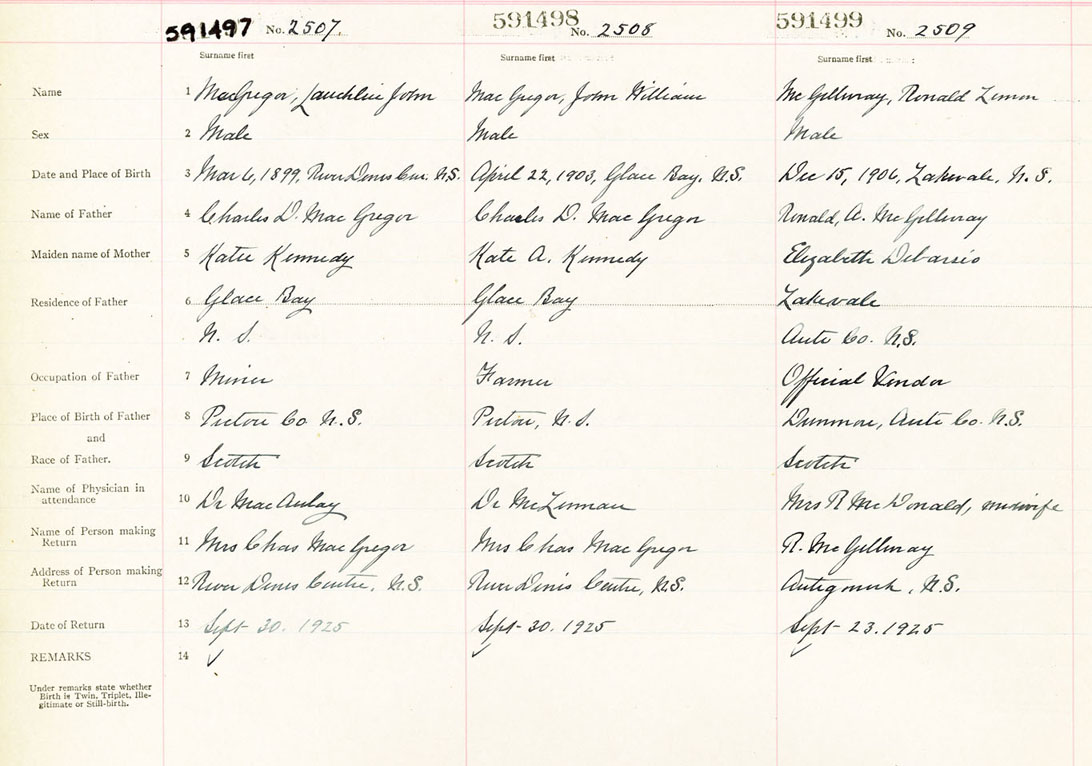 591497 No. 2507. 591498 No. 2508 591499 No. 2509
Surname first Surname first Surname first
Name 1 MacGregor, Lauchlin John MacGregor, John William McGillivray, Ronald
Sex 2 Male Male Male
Date and Place of Birth 3 Mar 6, 1899, River Denis Cen. N.S. April 22, 1903, Glace Bay. N.S. Dec 15, 1906, Lakevale, N.S.
Name of Father 4 Charles D. MacGregor Charles D. MacGregor Ronald, A. McGillivray
Maiden name of Mother 5 Katie Kennedy Kate A. Kennedy Elizabeth
Residence of Father 6 Glace Bay Glace Bay Lakevale
N. S. N. S. Ante Co. N.S.
Occupation of Father 7 Miner Farmer Official Vendor
Place of Birth of Father 8 Pictou Co N.S. Pictou, N.S. Dunmore, Ante Co. N.S.
and
Race of Father. 9 Scotch Scotch Scotch
Name of Physician in
attendance 10 Dr MacAulay Dr McLennan Mrs R McDonald, midwife
Name of Person making
Return 11 Mrs Chas MacGregor Mrs Chas MacGregor R. McGillivray
Address of Person making
Return 12 River Denis Centre, N.S. River Denis Centre, N.S. Antigonish, N.S.
Date of Return 13 Sept 30. 1925 Sept 30. 1925 Sept 23. 1925
REMARKS 14 ✓ ✓ ✓
Under remarks state whether
Birth is Twin, Triplet, Ille-
gitimate or Still-birth.